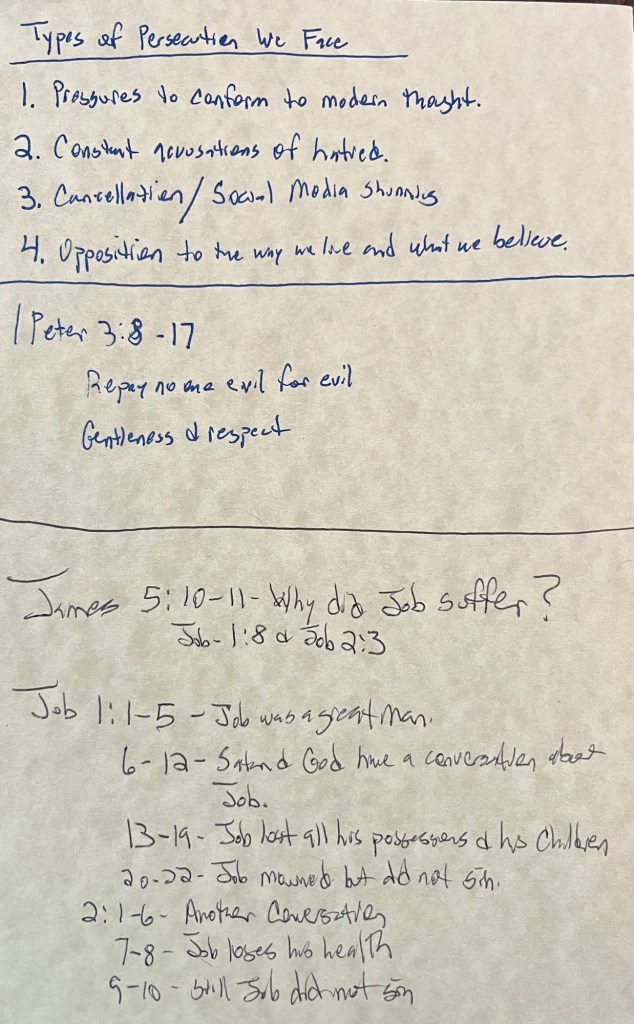 Types of Persecution We Face
1. Pressures to conform to modern thought.
2. Constant accusations of hatred.
3. Cancellation/Social Media Shunning
4. Opposition to the way we live and what we believe.
1 Peter 3:8-17
Repay no one evil for evil
Gentleness & respect
James 5:10-11- Why did Job suffer?
Job- 1:8 & Job 2:3
Job 1:1-5 - Job was a great man.
6-12- Satan & God have a conversation about
Job.
13-19- Job lost all his possessions & his Children
20-22- Job mourned but did not sin.
2:1-6- Another Conversation
7-8- Job loses his health
9-10- Still Job did not sin